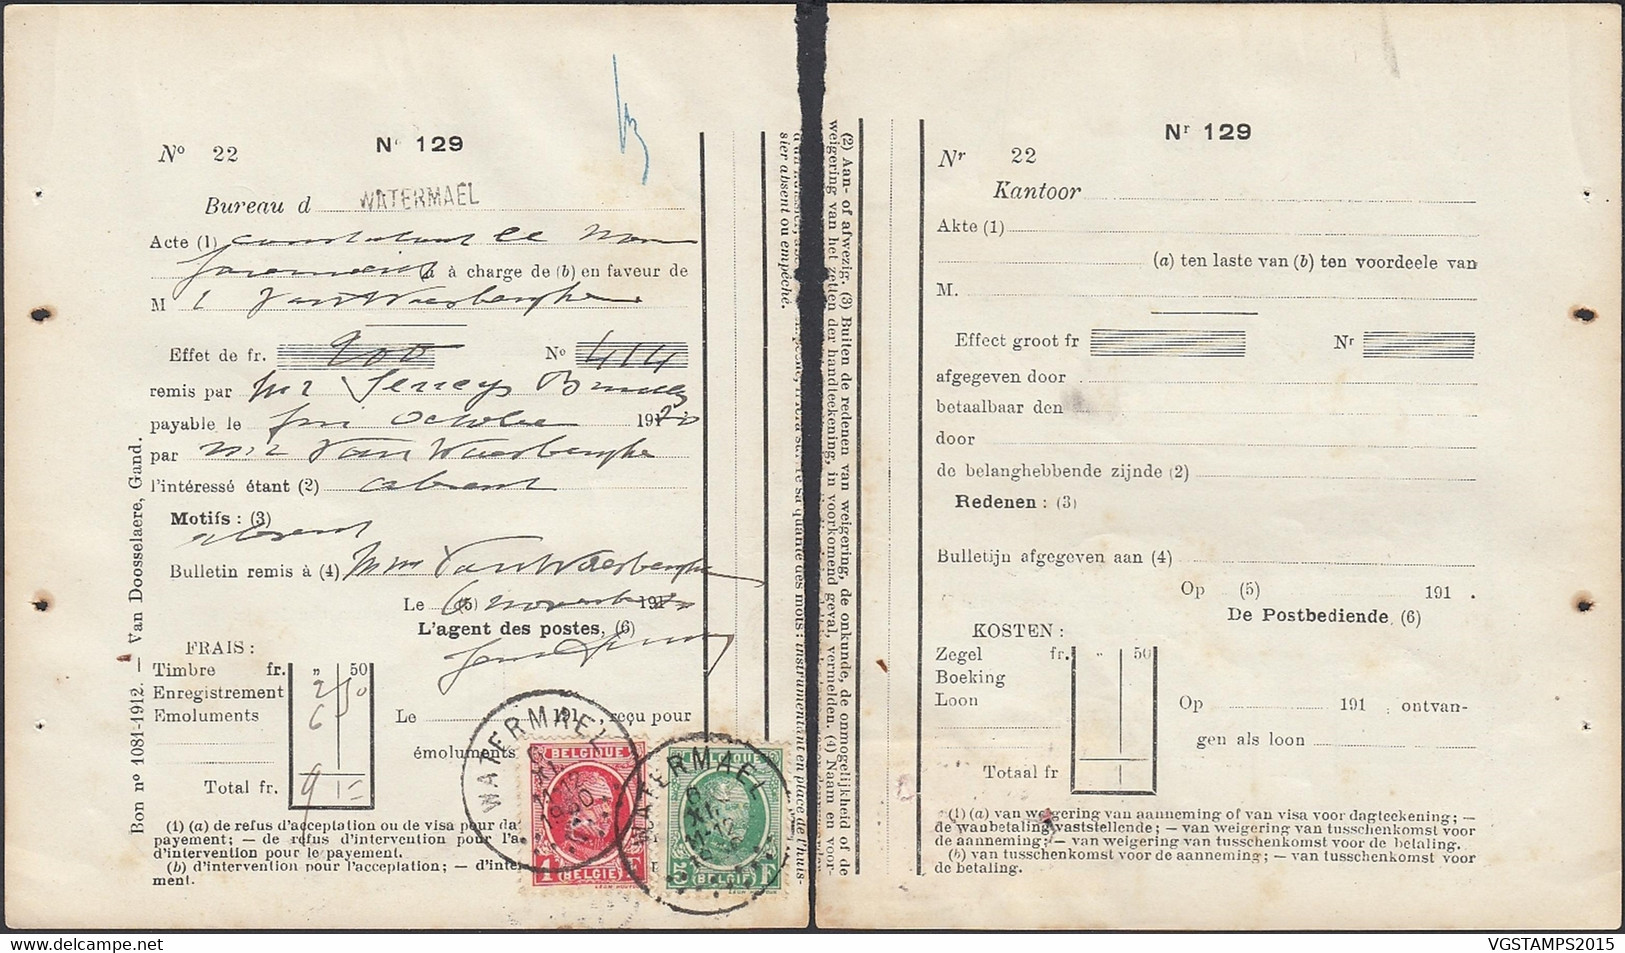 Nº 22
Nº 129
Bureau d WATERMAEL
Acte (1) constatant le non
(a) à charge de (b) en faveur de
M Van Waesberghe
Effet de fr. 900 Nº 414
remis par
payable le fin Octobre 191
par Van Waesberghe
l'intéressé étant (2) absent
Motifs : (3)
absent
Bulletin remis à (4) Mme Van Waesberghe
Le (5) 6 novembre 191
L'agent des postes, (6)
FRAIS :
Timbre fr. „ 50
Enregistrement 2 50
Emoluments 6
Total fr. 9 =
Le 191 , reçu pour
émoluments
(1) (a) de refus d'acceptation ou de visa pour da
payement; — de refus d'intervention pour l'a
d'intervention pour le payement.
(b) d'intervention pour l'acceptation; — d'inter
ment.
Bon nº 1081-1912. — Van Doosselaere, Gand.
WATERMAEL
6
XI
11-12
1930
BELGIQUE
1 F
(BELGIË)
WATERMAEL
6
XI
11-12
5 F
(BELGIË)
sier absent ou empêché.
(2) Aan- of afwezig. (3) Buiten de redenen van weigering, de onkunde, de onmogelijkheid of de
weigering van het zetten der handteekening, in voorkomend geval, vermelden. (4) Naam en voor-
Nr 129
Nr 22
Kantoor
Akte (1)
(a) ten laste van (b) ten voordeele van
M.
Effect groot fr Nr
afgegeven door
betaalbaar den
door
de belanghebbende zijnde (2)
Redenen : (3)
Bulletijn afgegeven aan (4)
Op (5) 191 .
De Postbediende, (6)
KOSTEN :
Zegel fr. „ 50
Boeking
Loon
Totaal fr
Op 191 , ontvan-
gen als loon
(1) (a) van weigering van aanneming of van visa voor dagteekening; —
de wanbetaling vaststellende; — van weigering van tusschenkomst voor
de aanneming; — van weigering van tusschenkomst voor de betaling.
(b) van tusschenkomst voor de aanneming; — van tusschenkomst voor
de betaling.
VGSTAMPS2015